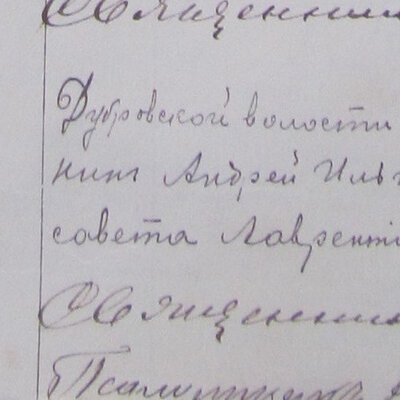 Священник
Дубровской волости
нин Андрей Иль
совета Лаврент
Священник
Псаломщик